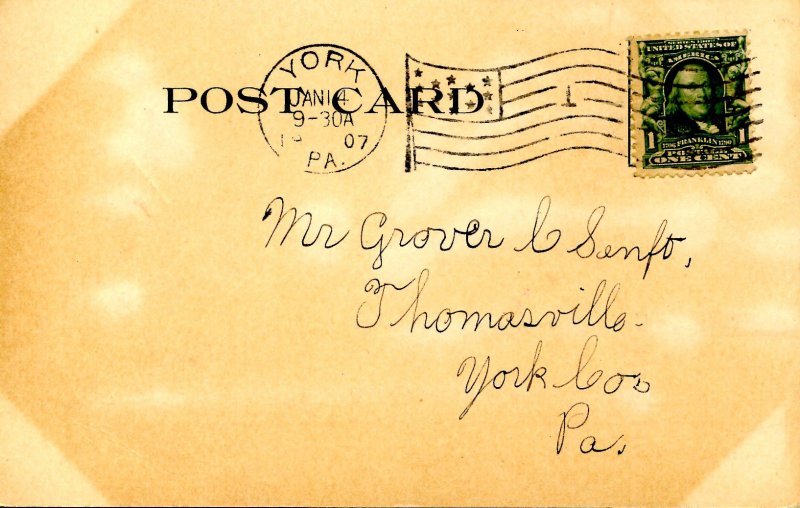 POST CARD
YORK
JAN 14
9-30A
07
PA.
1
SERIES 1902
UNITED STATES OF
AMERICA
1 1
1706 FRANKLIN 1790
ONE CENT
Mr Grover C Senft,
Thomasville.
York Co.
Pa.